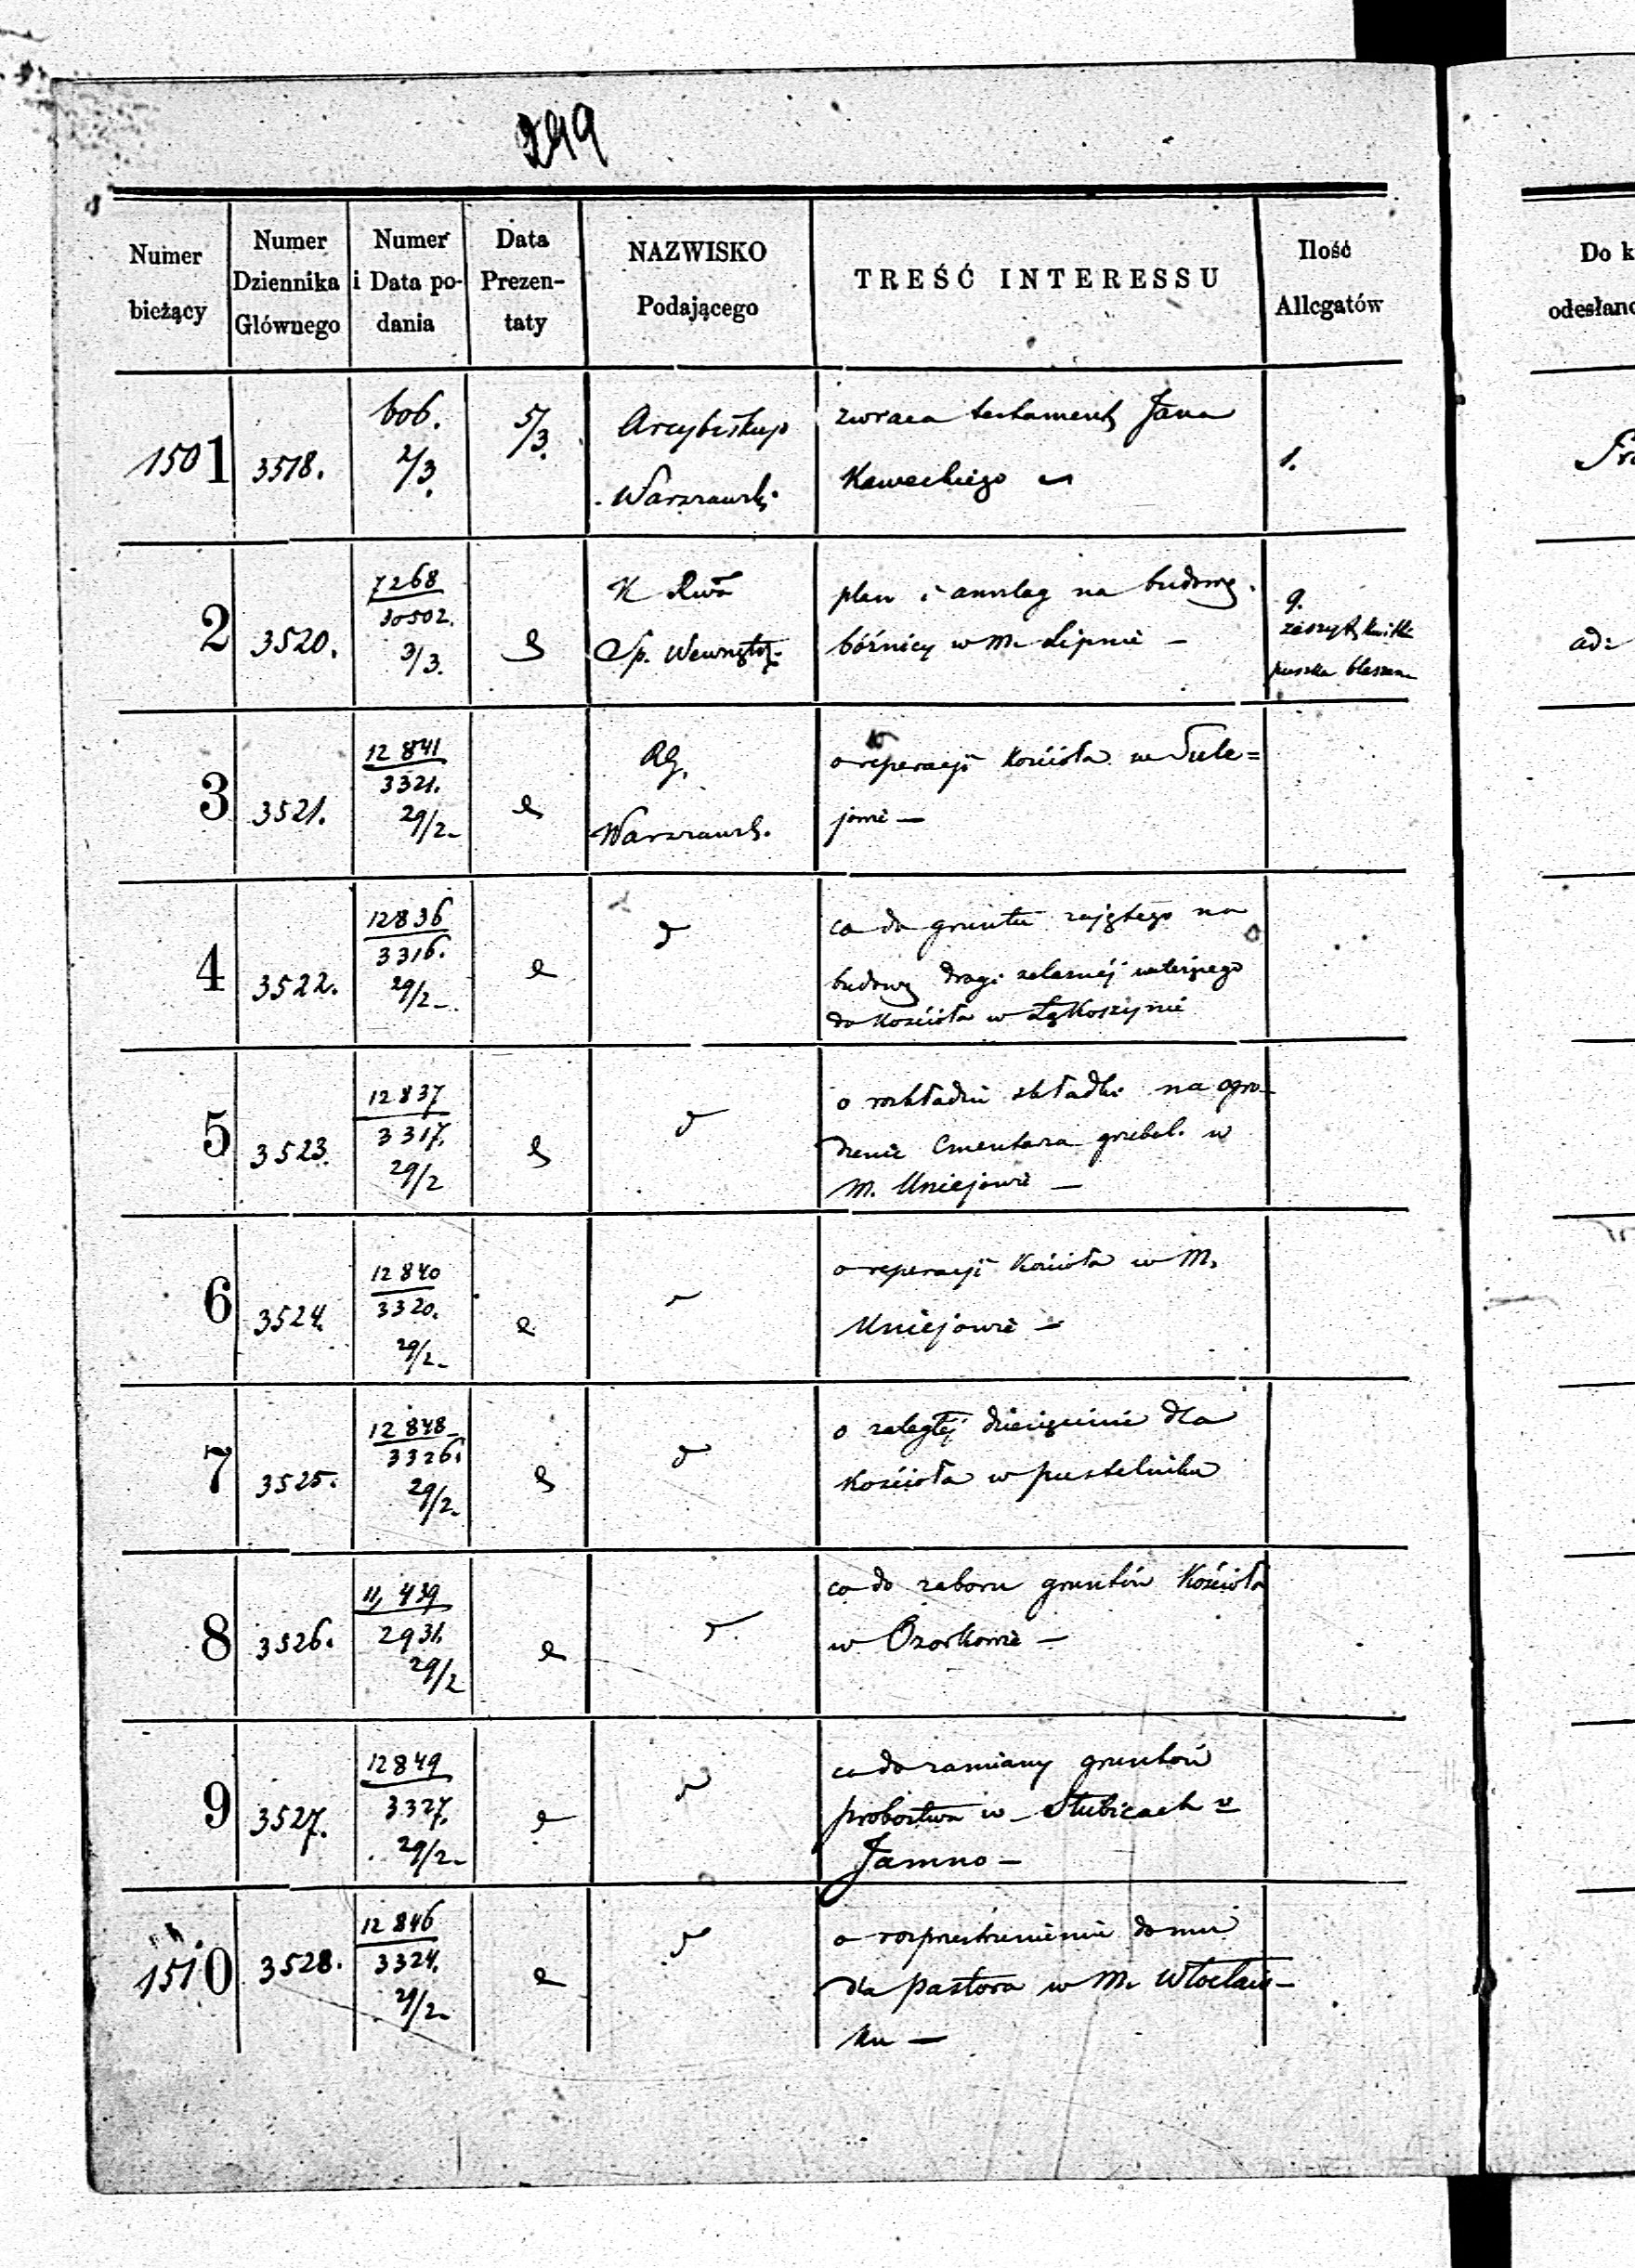 299
Numer bieżący
Numer Dziennika Głównego
Numer i Data podania
Data Prezentaty
NAZWISKO Podającego
TREŚĆ INTERESSU
Ilość Allegatów
Do k
odesłano
1501 3518. 606. 2/3. 5/3. Arcybiskup Warszawski zwraca testament Jana 1.
Kaweckiego
2 3520. 7268 30502. 3/3. K Rzą Sp. Wewnętrz. plan i anszlag na budowę 9.
bóżnicy w M. Lipnie — zeszyt
puszka blaszan
ad:
3 3521. 12841 3321. 29/2 RG. Warszawsk. o reperacji Kościoła w Sule=
jowie —
4 3522. 12836 3316. 29/2 d co do gruntu zajętego na
budowę drogi żelaznéj należnego
do Kościoła w Łękoszynie
5 3523. 12837 3317. 29/2 d o rozkładzie składki na ogro-
dzenie Cmentarza grzebal. w
M. Uniejowie —
6 3524. 12840 3320. 29/2 o reperacji Kościoła w M.
Uniejowie —
7 3525. 12848 3326. 29/2 d o zaległéj dziesięcinie dla
Kościoła w pustelniku
8 3526. 11,439 2931. 29/2 co do zaboru gruntów Kościoła
w Ozorkowie —
9 3527. 12849 3327. 29/2 co do zamiany gruntów
probostwa w Słubicach v
Jamno —
1510 3528. 12846 3324. 29/2 o rozprzestrzenienie domu
dla pastora w M. Włocław-
ku —